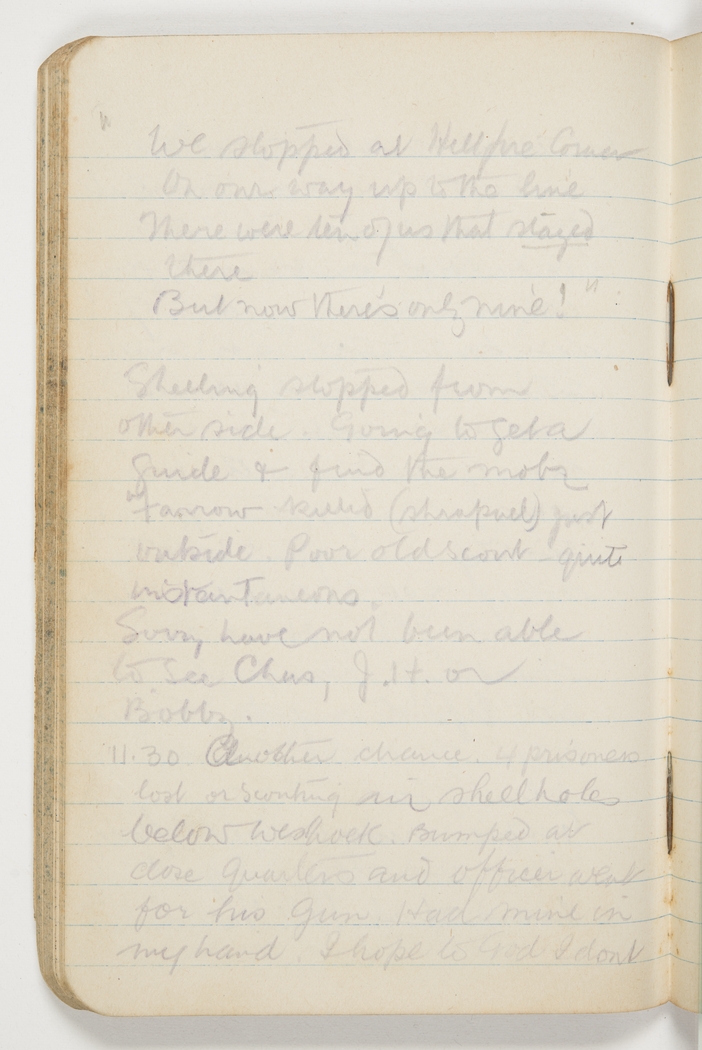 "
We stopped at Hellfire Corner
On our way up to the line
There were ten of us that stayed
there
But now there's only nine! "
Shelling stopped from
other side. Going to get a
guide & find the moby
"Farrow killed (shrapnel) just
outside. Poor old scout quite
instantaneous.
Sorry have not been able
to see Chas, J.H. or
Bobby.
11.30 Another chance. 4 prisoners
lost or scouting in shell holes
below Westhoek. Bumped at
close quarters and officer went
for his gun. Had mine in
my hand. I hope to God I dont